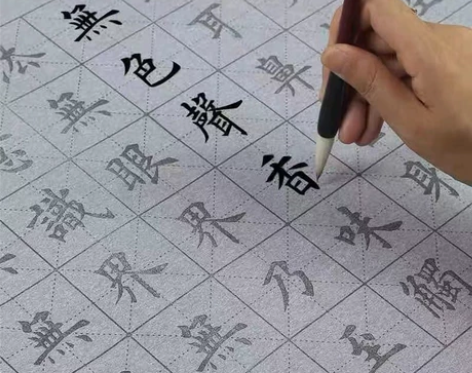 耳鼻身
無色聲香味觸
無眼界乃至
識界無
無